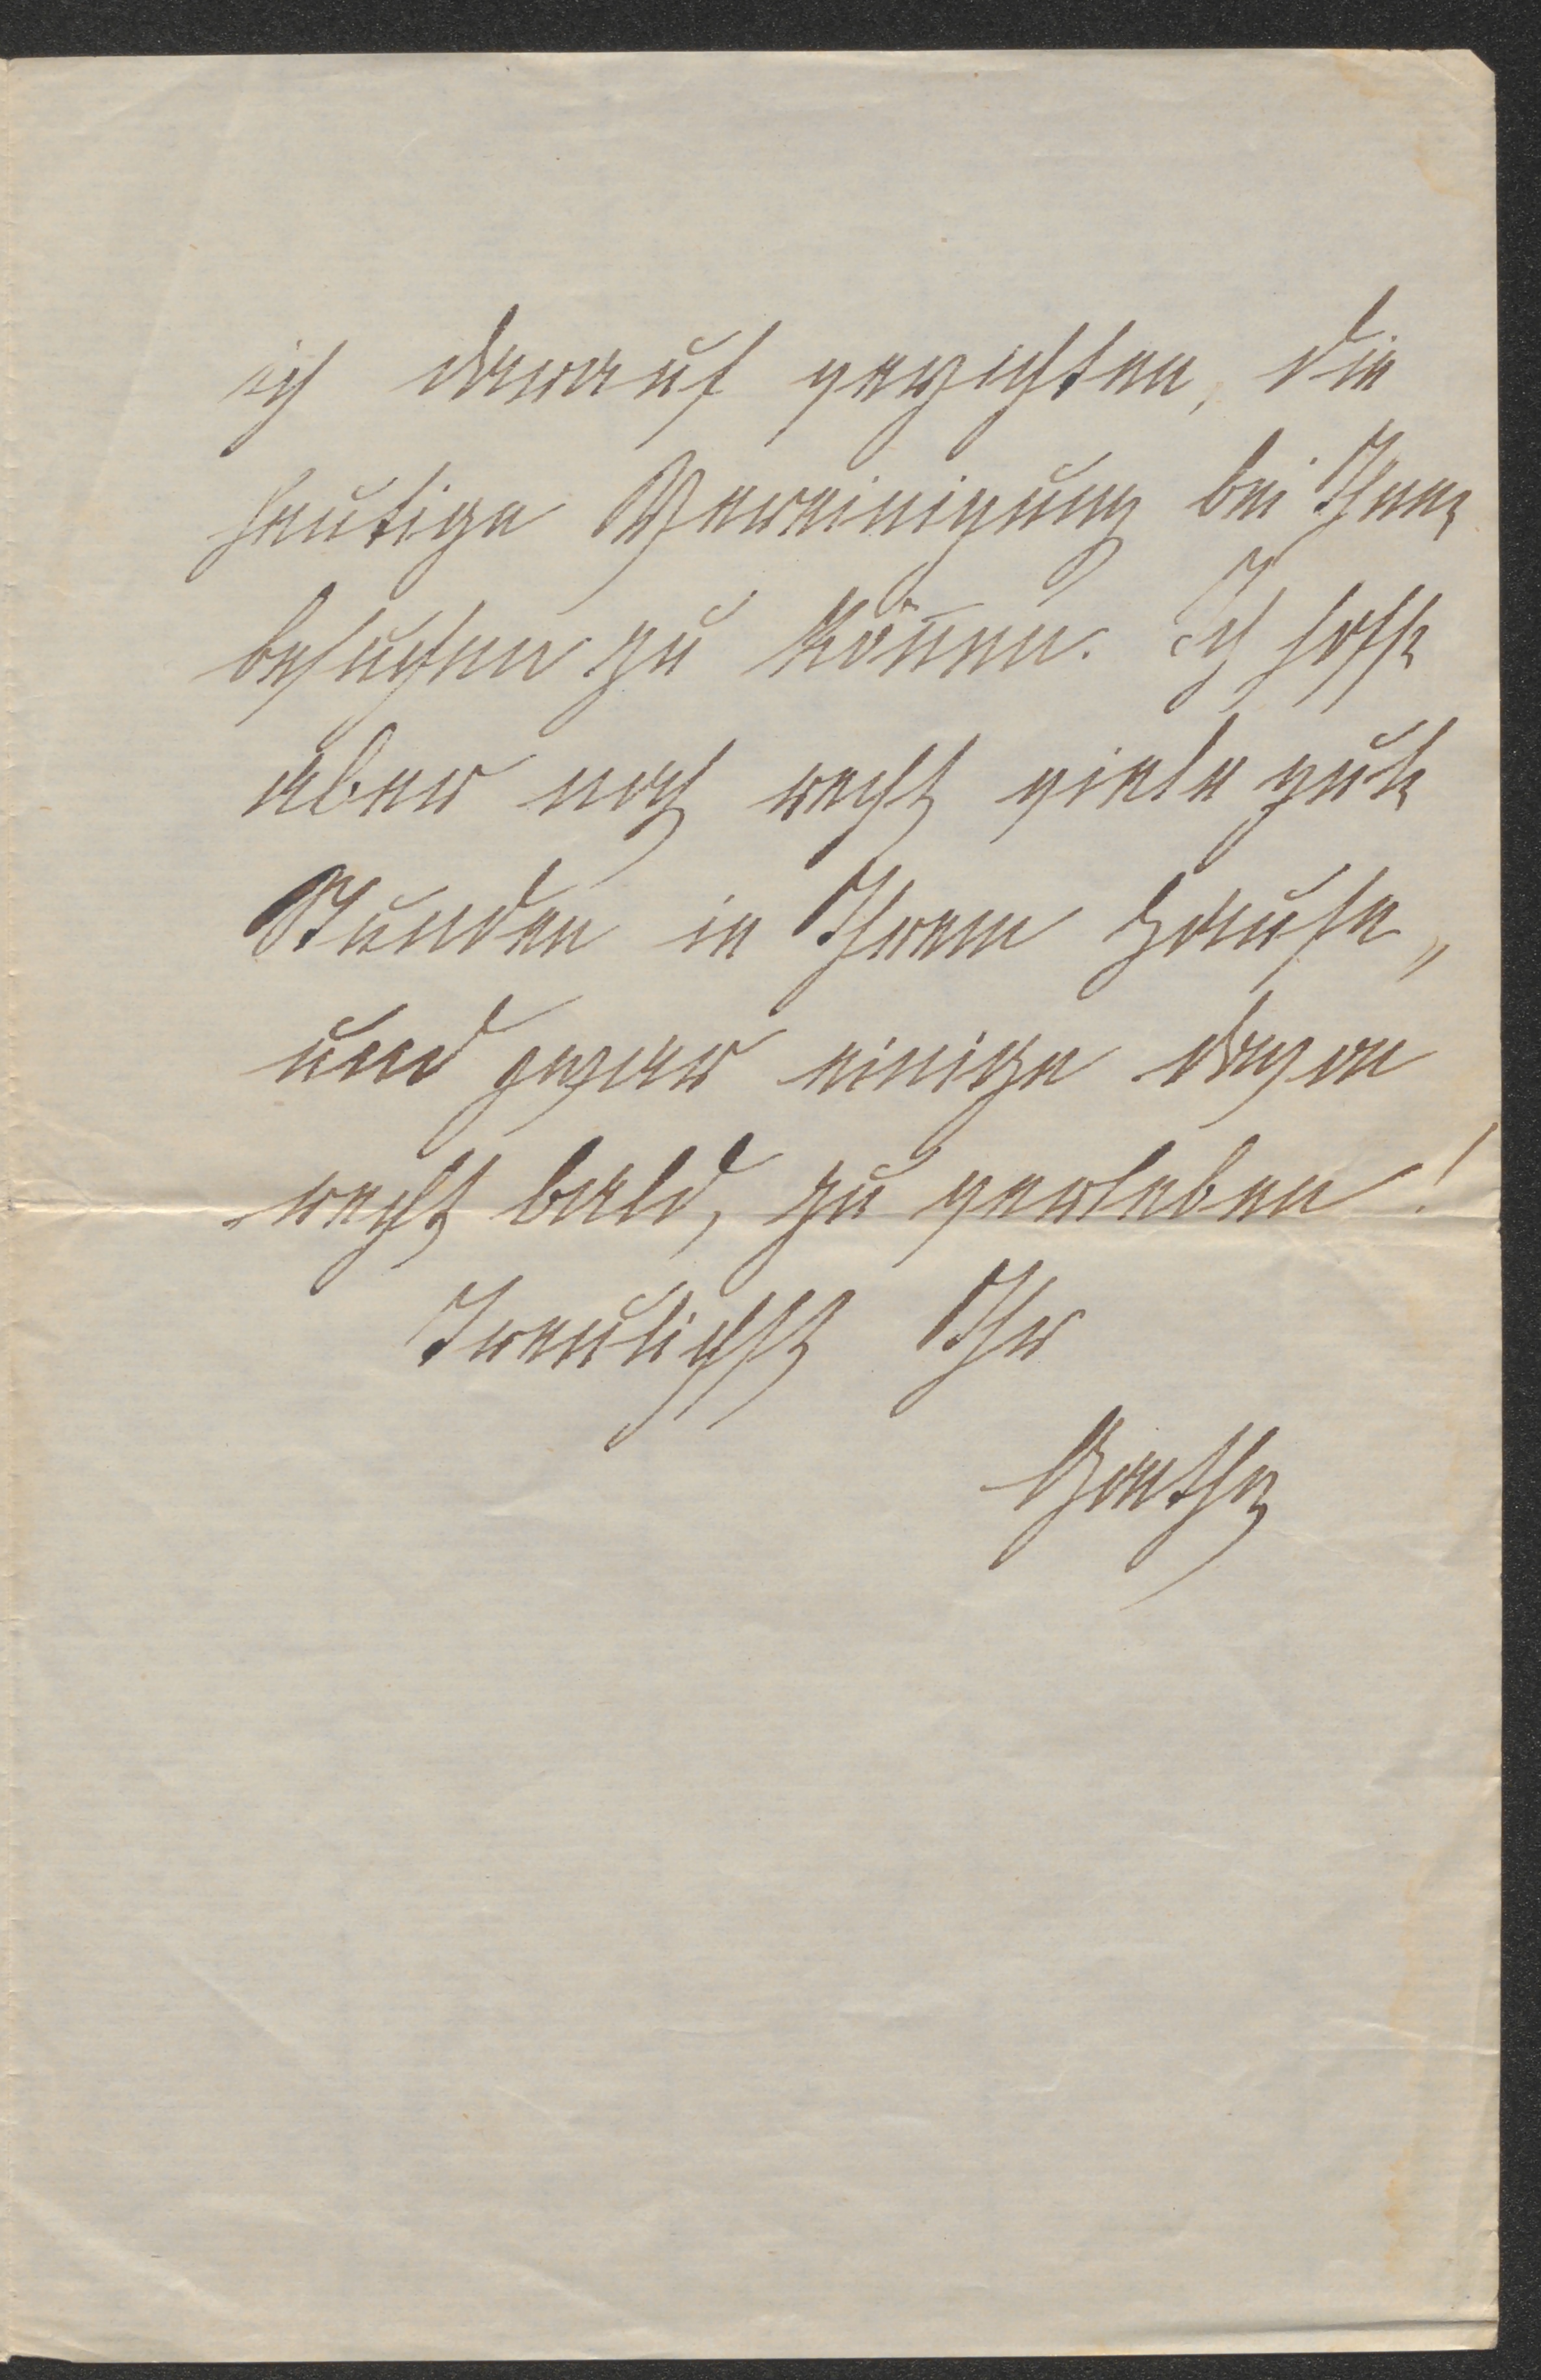 ich darauf verzichten, die
heutige Vereinigung bei Ihnen
besuchen zu können. Ich hoffe
aber noch recht viele gute
Stunden in Ihrem Hause,
und zwar einige davon
recht bald, zu verleben!
Treulichst Ihr